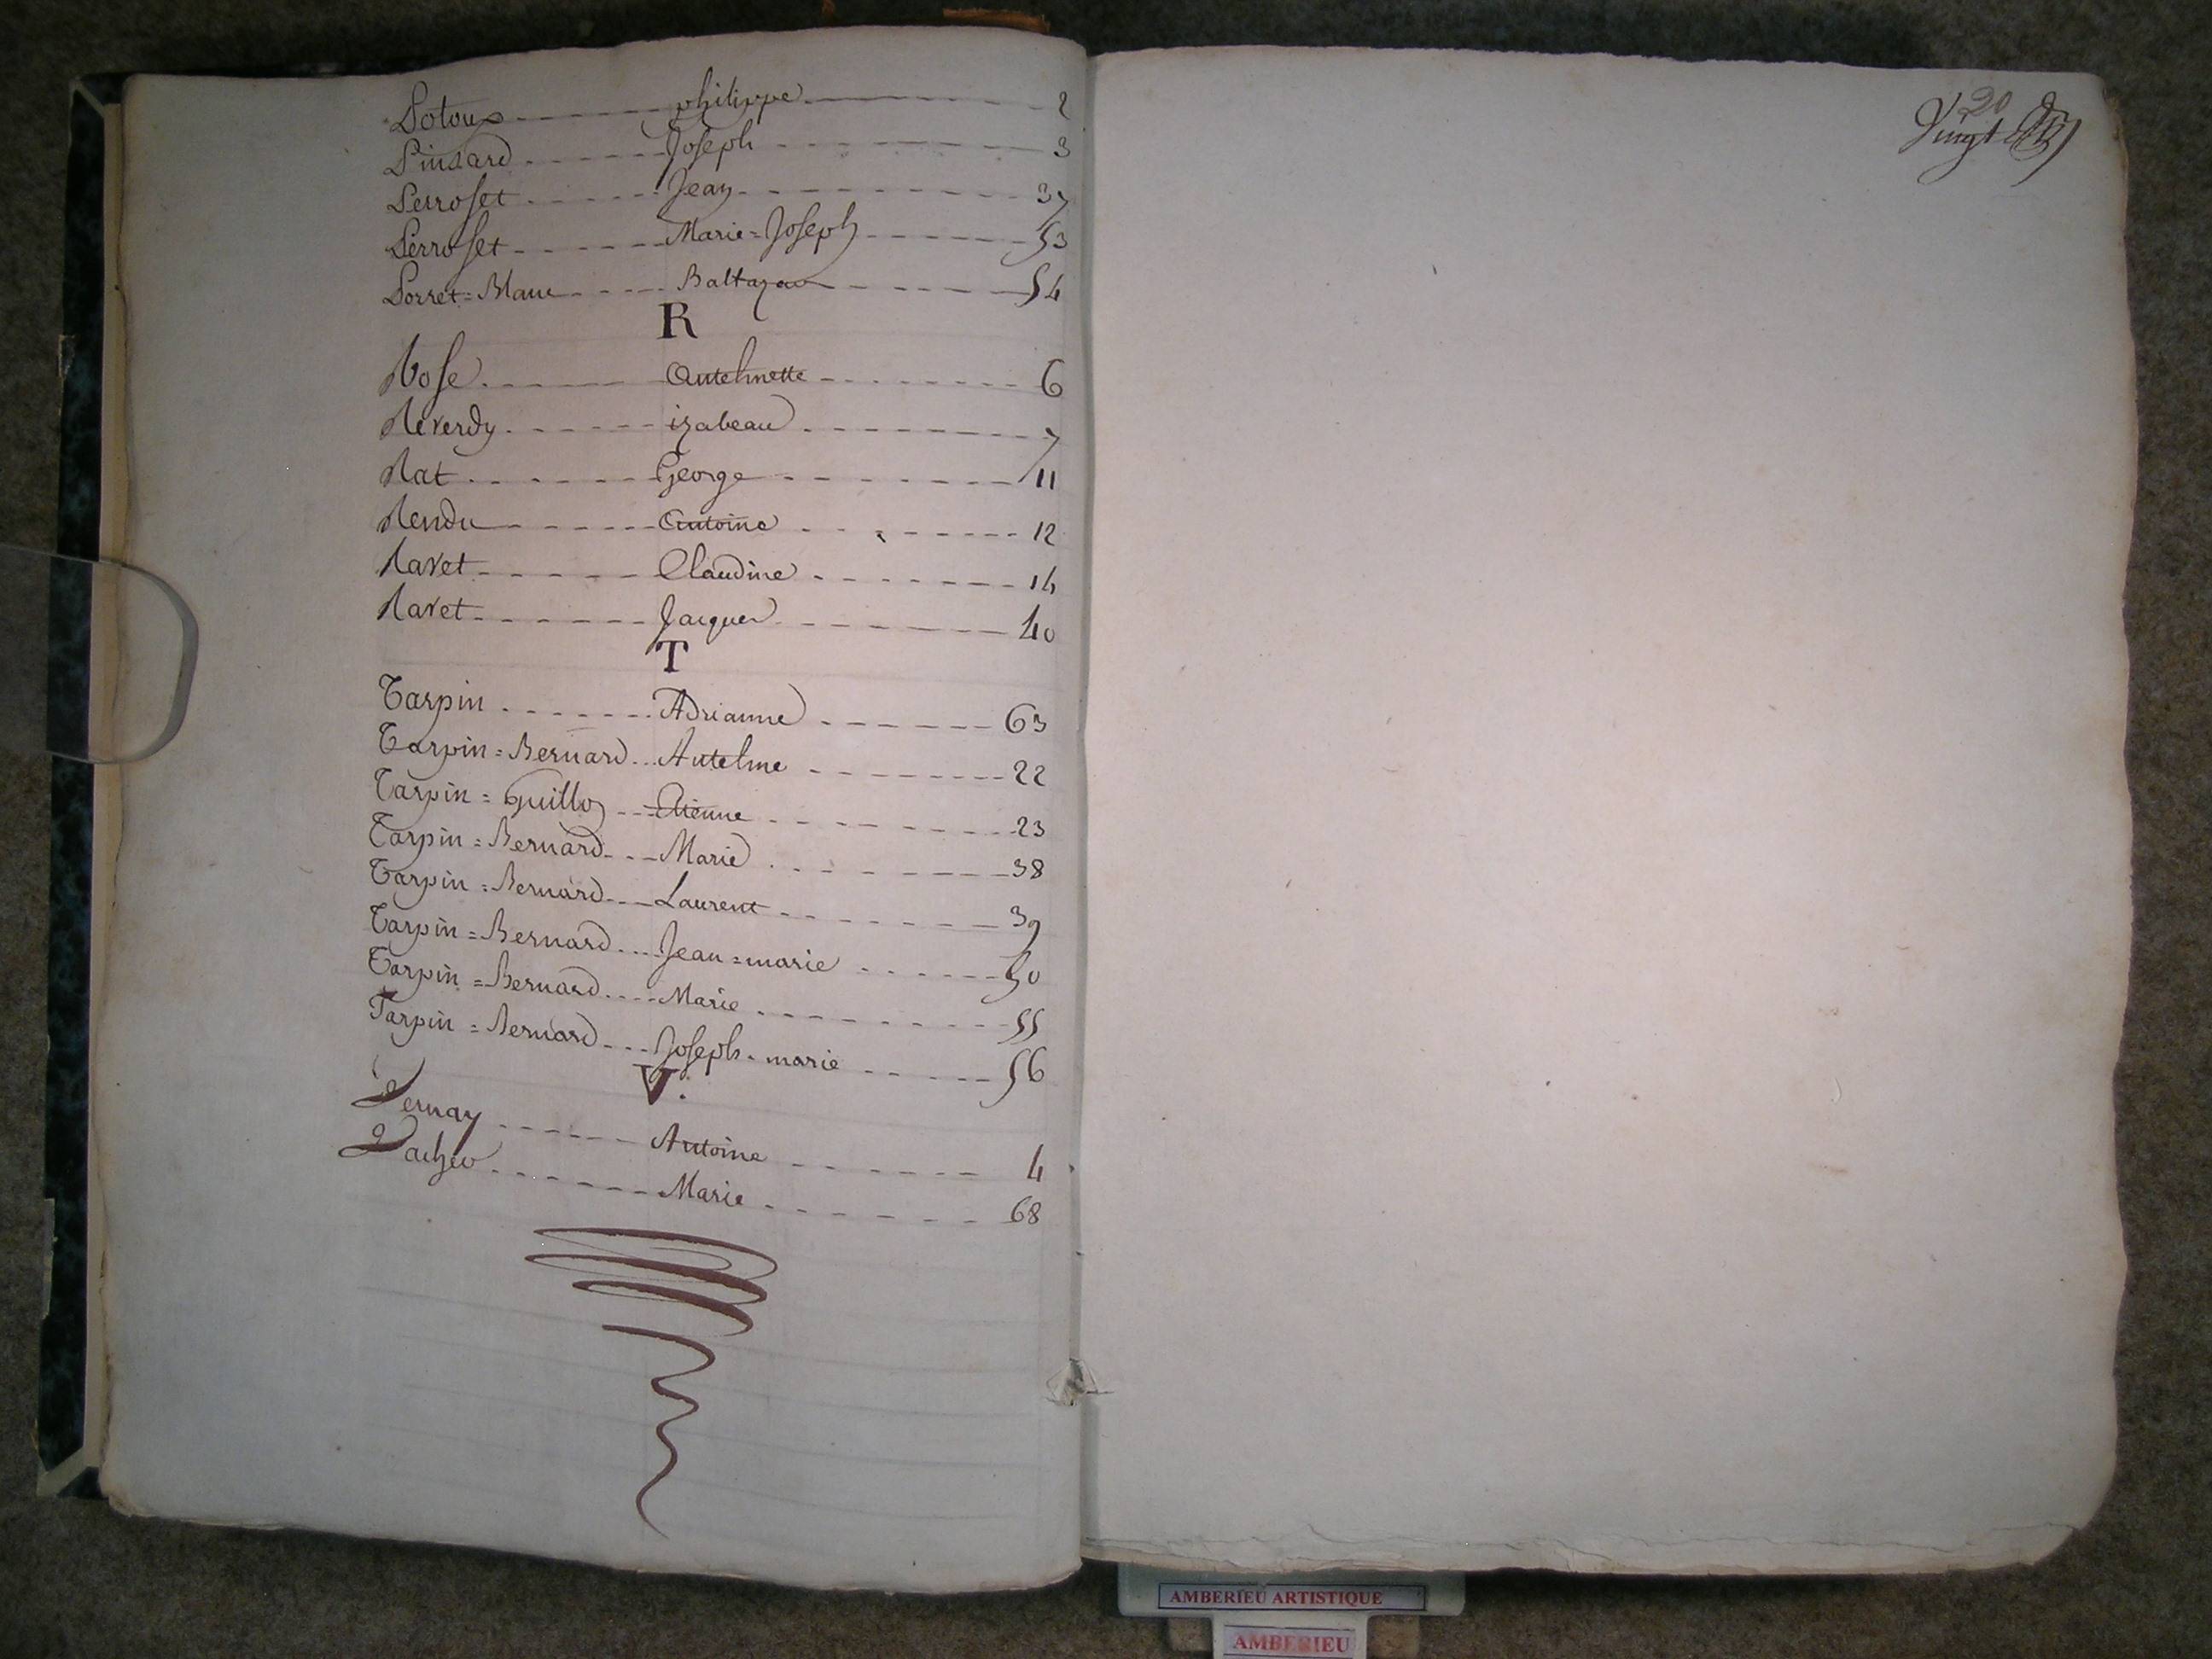 Potoux philippe 2
Pinsard Joseph 3
Perroset Jean 37
Perroset Marie=Joseph 53
Porret=Blanc Baltazar 54
R
Rose Antelmette 6
Reverdy izabeau 7
Rat George 11
Rendu Antoine 12
Ravet Claudine 14
Ravet Jacques 40
T
Tarpin Adrianne 63
Tarpin=Bernard Antelme 22
Tarpin=Guillon Etienne 23
Tarpin=Bernard Marie 38
Tarpin=Bernard Laurent 39
Tarpin=Bernard Jean=marie 50
Tarpin=Bernard Marie 55
Tarpin=Bernard Joseph-marie 56
V.
Vernay Antoine 4
Marie 68
20
Vingt
AMBERIEU ARTISTIQUE
AMBERIEU